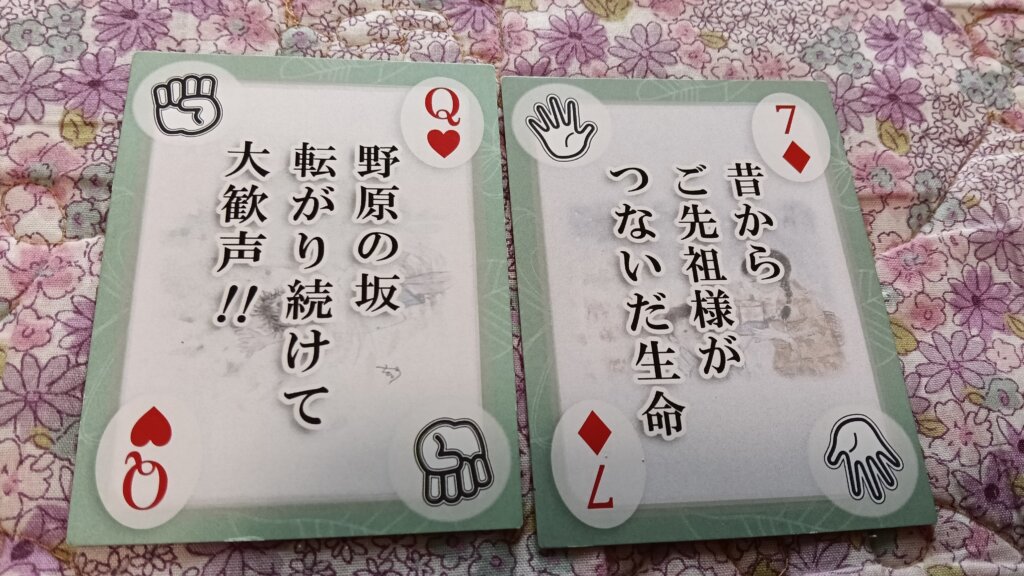 Q
野原の坂
転がり続けて
大歓声!!
Q
7
昔から
ご先祖様が
つないだ生命
7